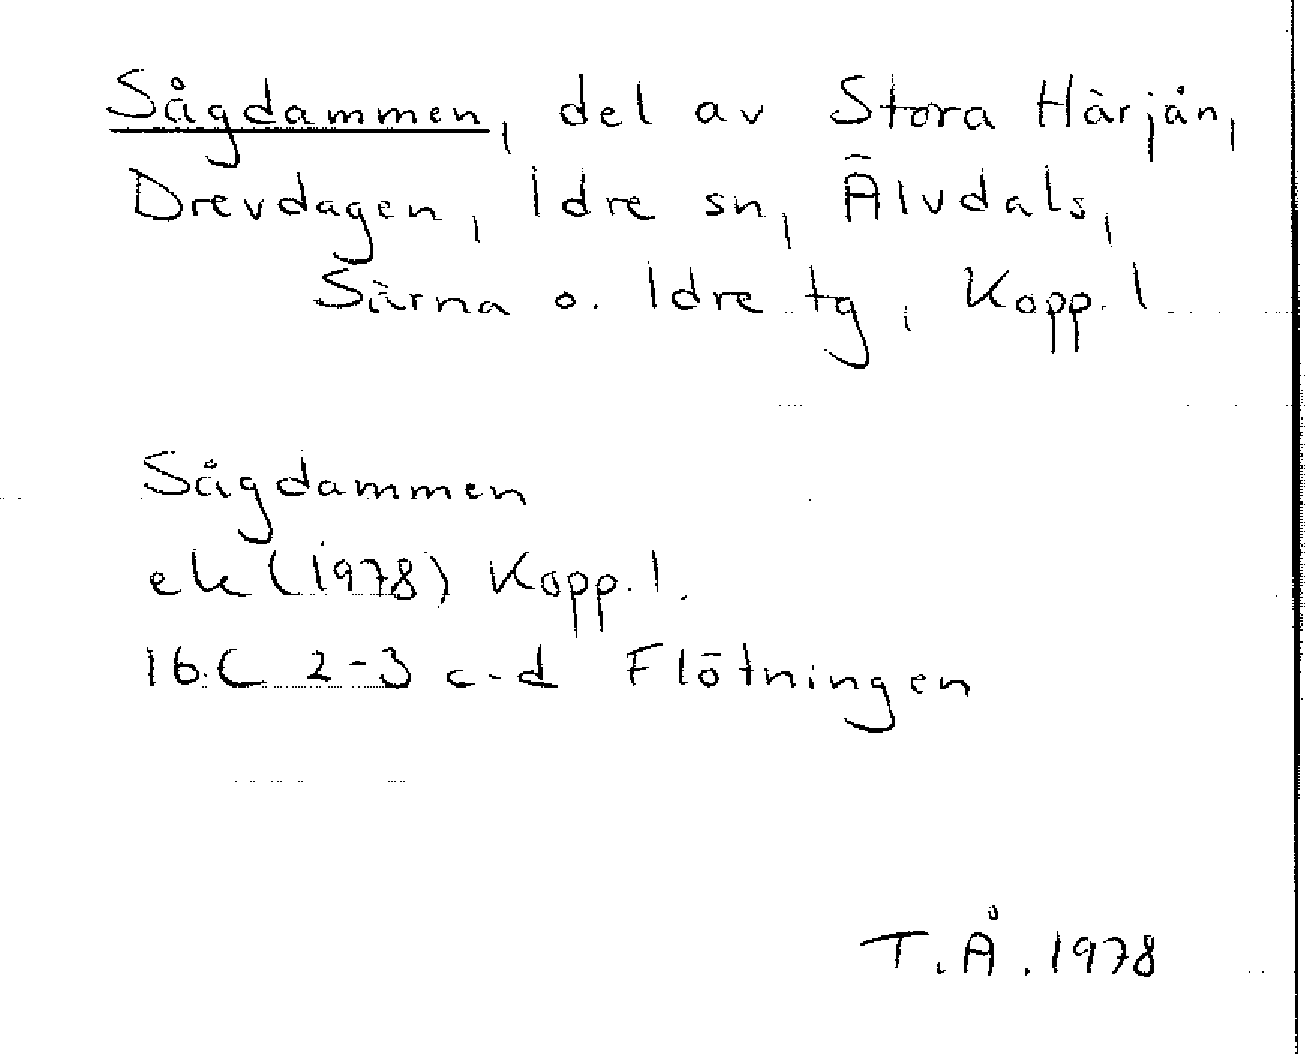 Sågdammen, del av Stora Härjån,
Drevdagen, Idre sn, Älvdals,
Särna o. Idre tg, Kopp. l
Sågdammen
ek (1978) Kopp. l.
16 C 2-3 c-d Flötningen
T. Å. 1978